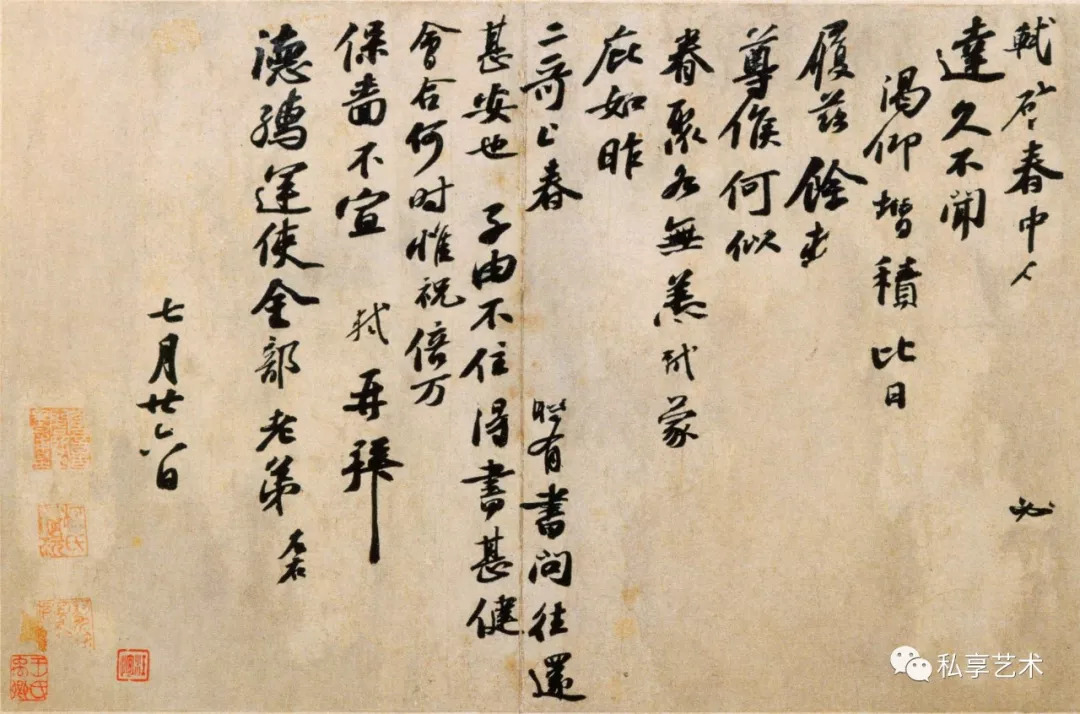 軾啓春中人必
達久不聞
渴仰增積比日
履茲餘
尊候何似
眷聚各無恙軾蒙
庇如昨
二哥上春有書問往還
甚安也子由不住得書甚健
會合何时惟祝倍万
保嗇不宣軾再拜
德孺運使金部老弟
七月廿六日
私享艺术